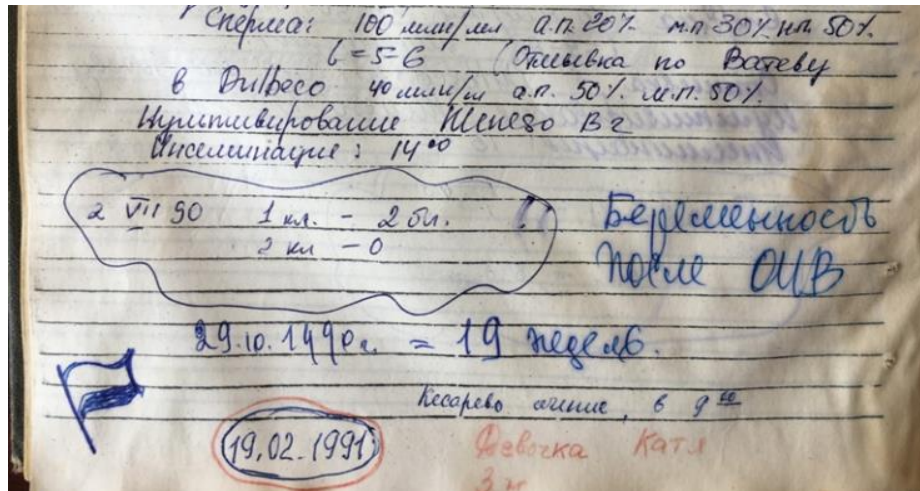 Сперма: 100 млн/мл а.п. 20% м.п. 30% н.п. 50%.
(Отмывка по
в Dulbeco 40 млн/мл а.п. 50%. м.п. 50%.
Культивирование Menezo B2
Инсеминация: 14⁰⁰
2 VII 90 1 кл. - 2 бл.
2 кл - 0
Беременность
после
29.10.1990г. = 19 недель.
Кесарево сечение, в 9⁰⁰
19.02.1991
Девочка Катя